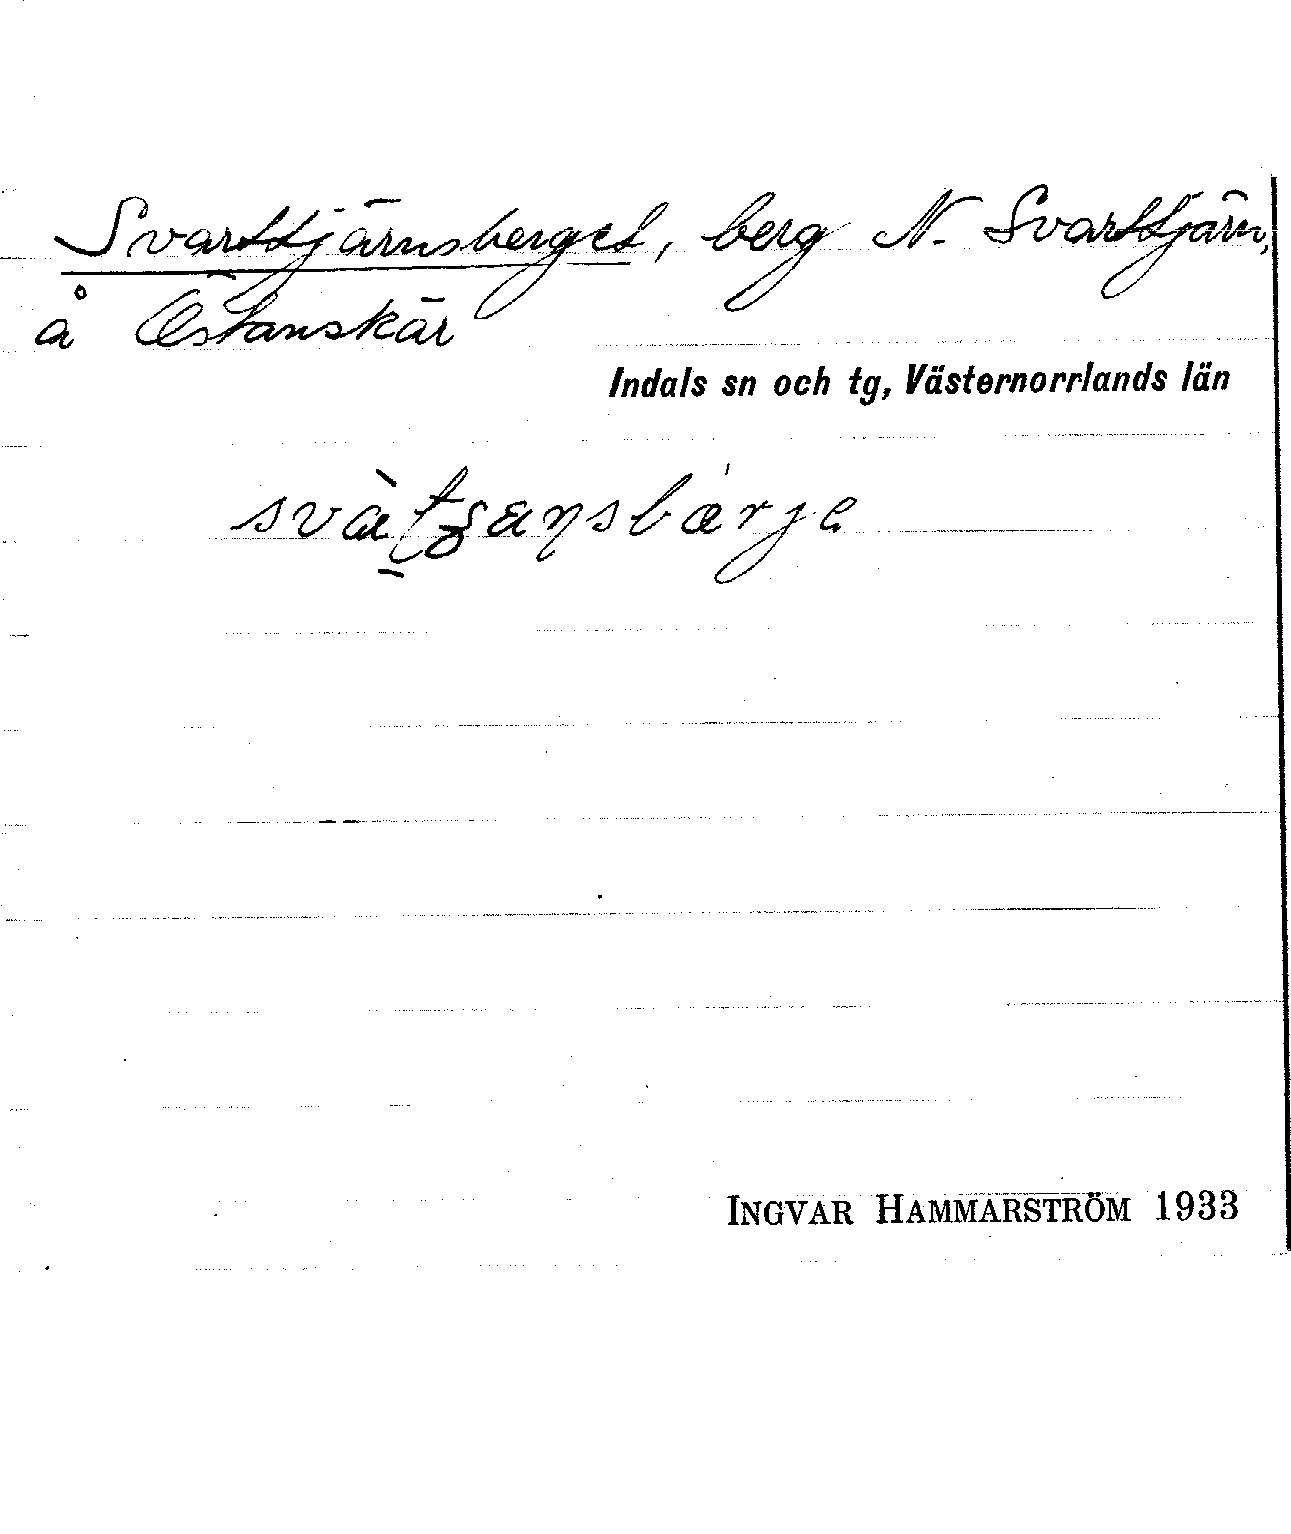 Svarttjärnsberget, berg N. Svarttjärn,
å Östanskär
Indals sn och tg, Västernorrlands län
INGVAR HAMMARSTRÖM 1933